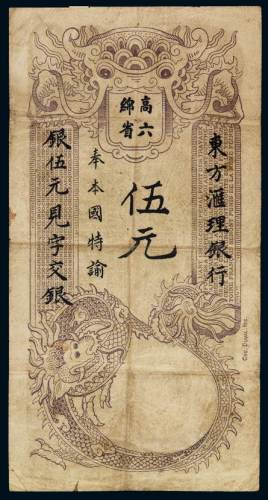 東方滙理銀行
高綿
六省
伍元
奉本國特諭
銀伍元見字交銀